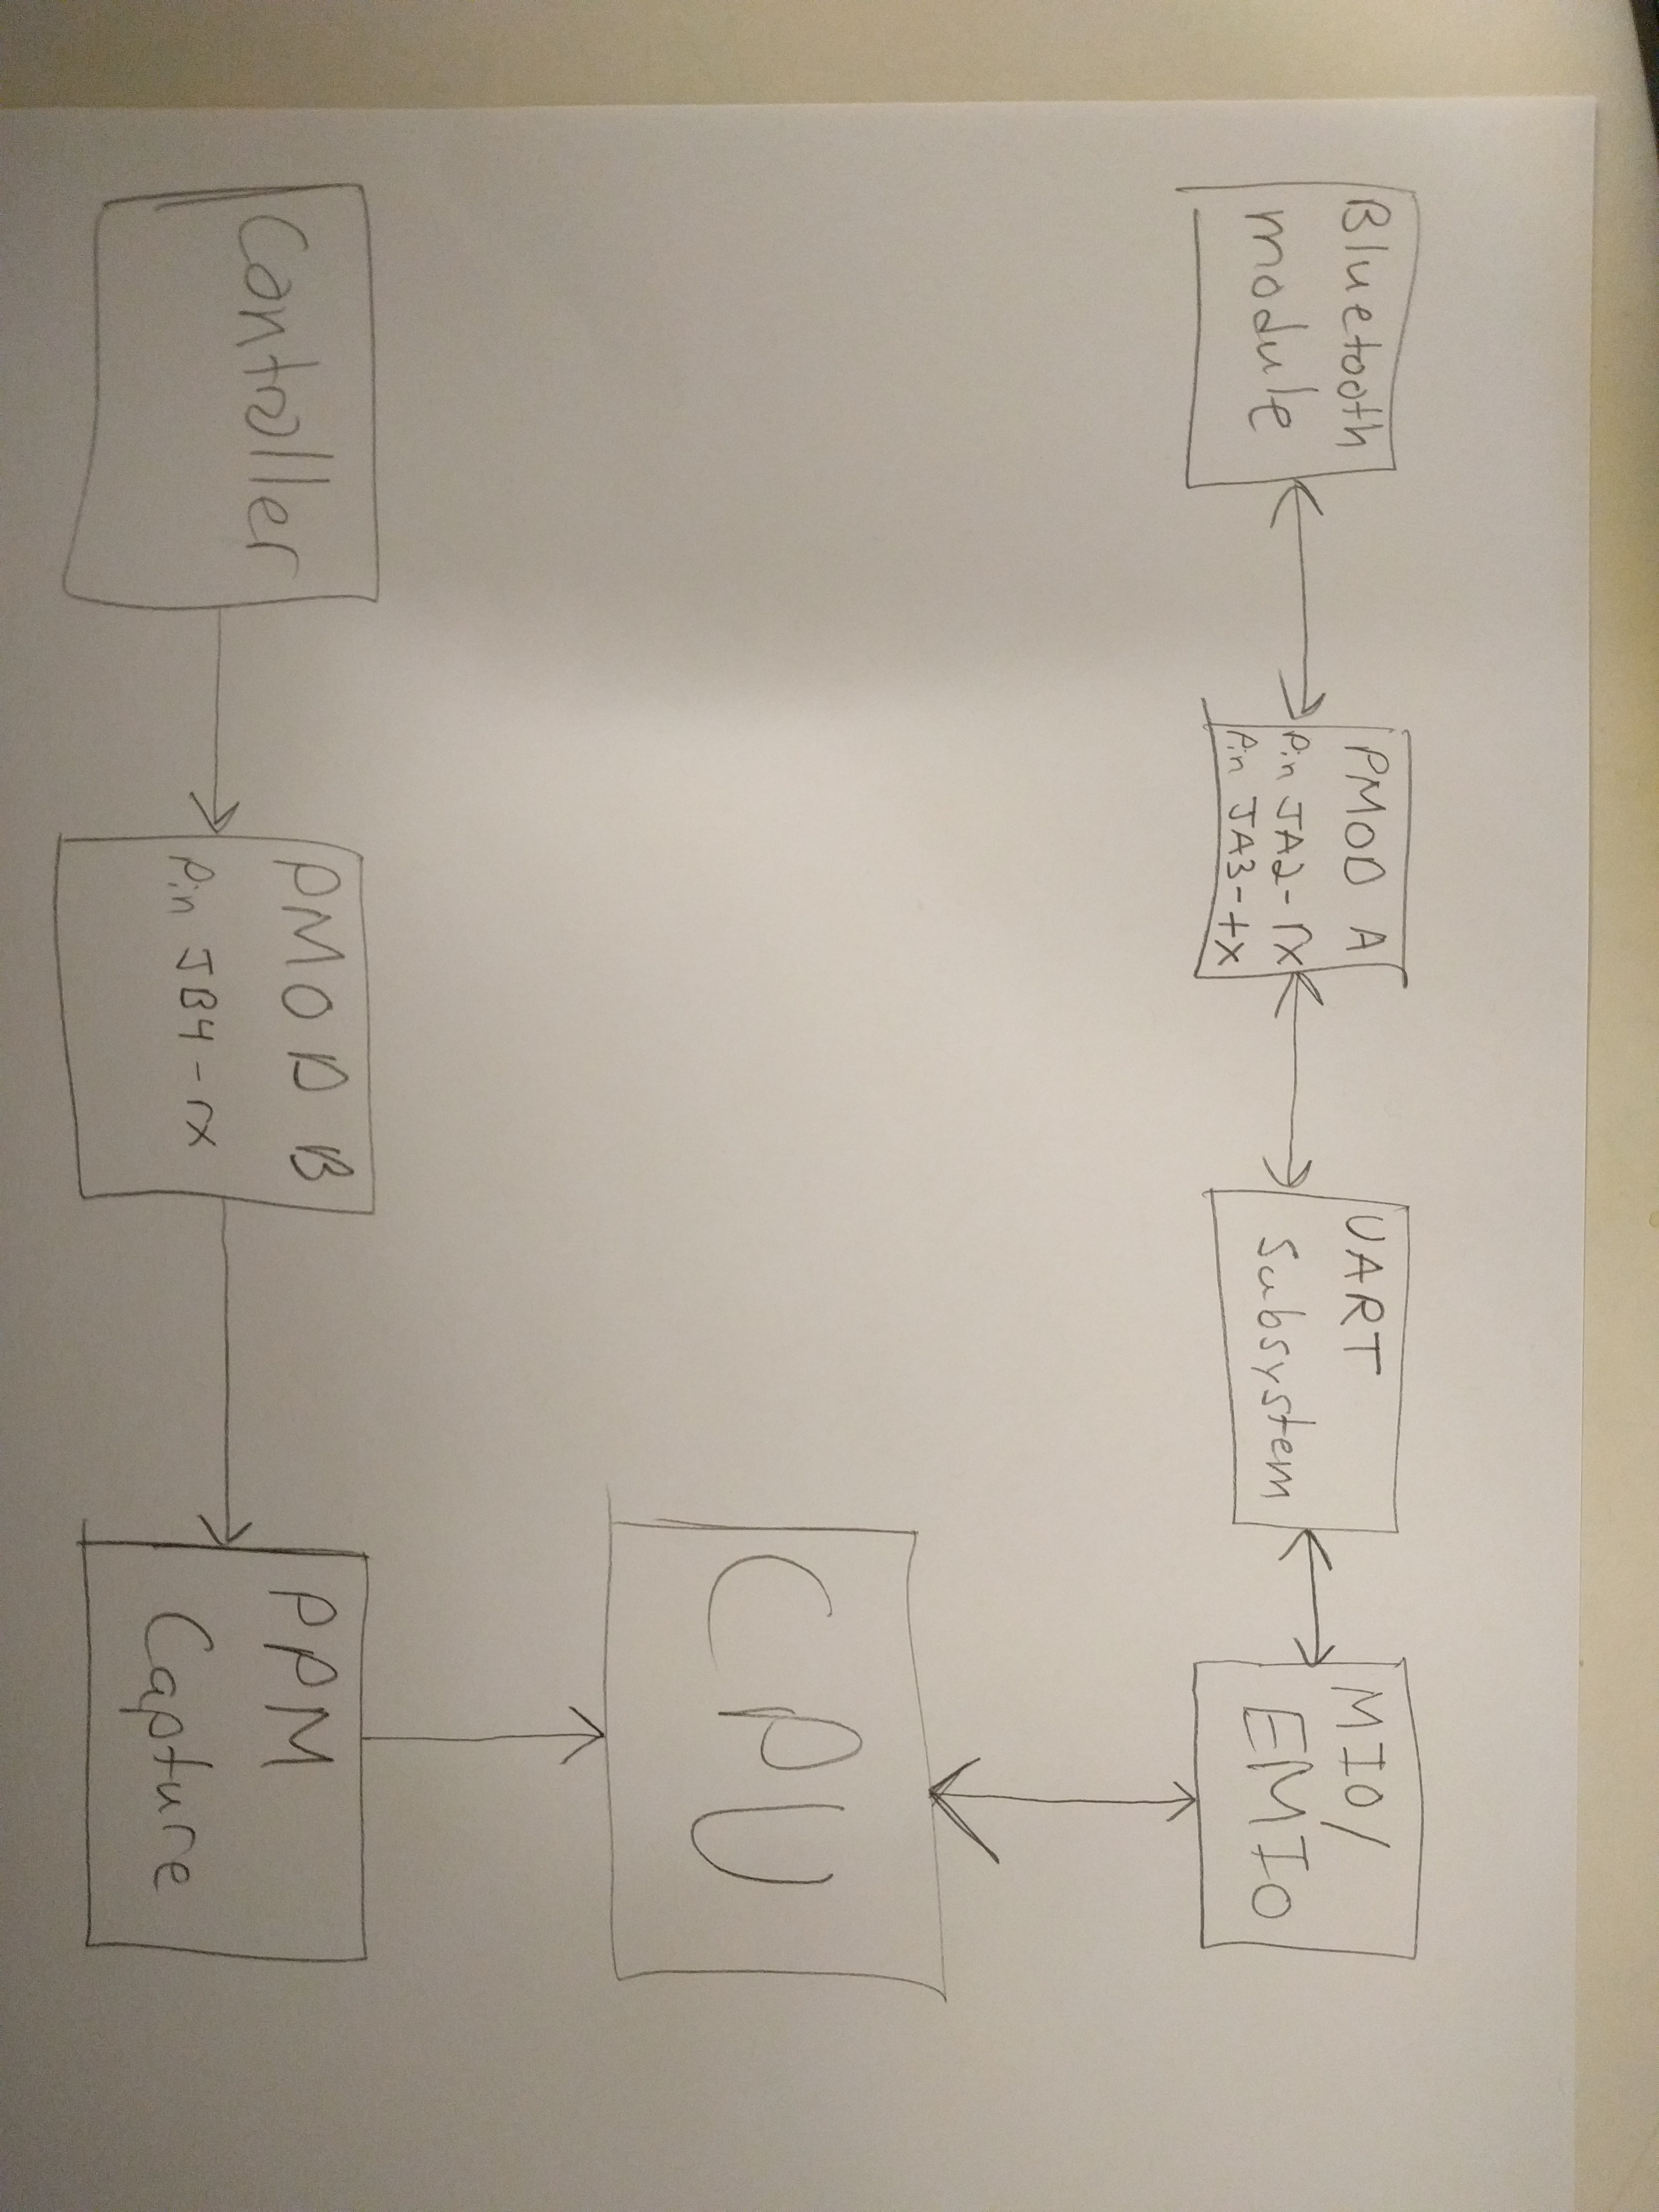 Bluetooth
module
PMOD A
Pin JA2-rx
Pin JA3-tx
UART
Subsystem
MIO/
EMIO
CPU
Controller
PMOD B
Pin JB4-rx
PPM
Capture